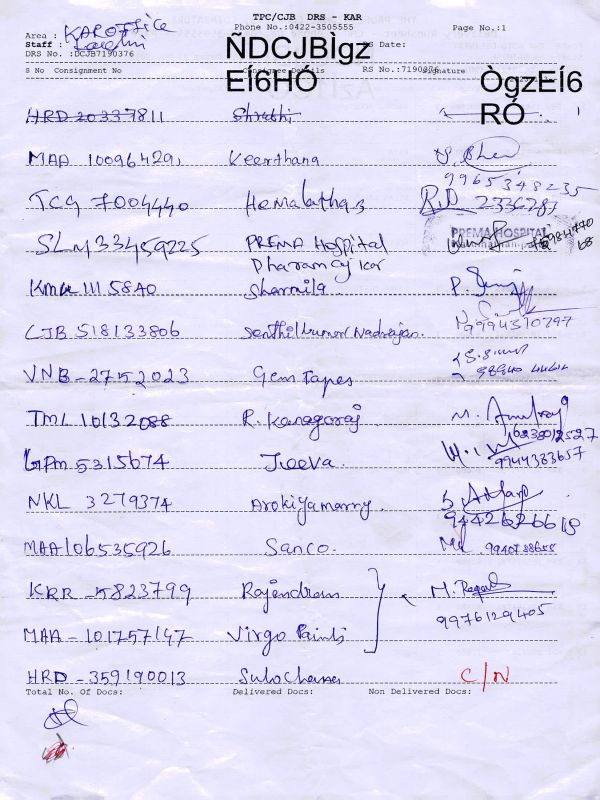 TPC/CJB DRS - KAR
Phone No.:0422-3505555
Page No.:1
Area : KAR OFFICE
Staff :
DRS No. :DCJB7190376
ÑDCJBÌgz
EÍ6HÓ
RS Date:
S No Consignment No Consignee Details RS No.:7190376 Signature
ÒgzEÍ6
RÓ
HRD 20337811 Shruthi
MAA 100964291 Keerthana
9965348235
TCG 7004440 Hemalatha 2336281
SLM 33459225 PREMA Hospital PREMA HOSPITAL
KMU 1115840 Sharmila P.
CJB 518133806 Senthilkumar Nadrajan 9994310797
VNB-2752023 Gem Tapes
TML 10132088 R. Kanagaraj M.
GPM 5315674 Jeeva 9944383657
NKL 3279374 Arokiyamarry
9442626618
MAA106535926 Sanco
KRR-5823799 Rajendran M.
9976129405
MAA-101757147 Virgo Paints
HRD-359190013 Sulochana C/N
Total No. Of Docs: Delivered Docs: Non Delivered Docs: